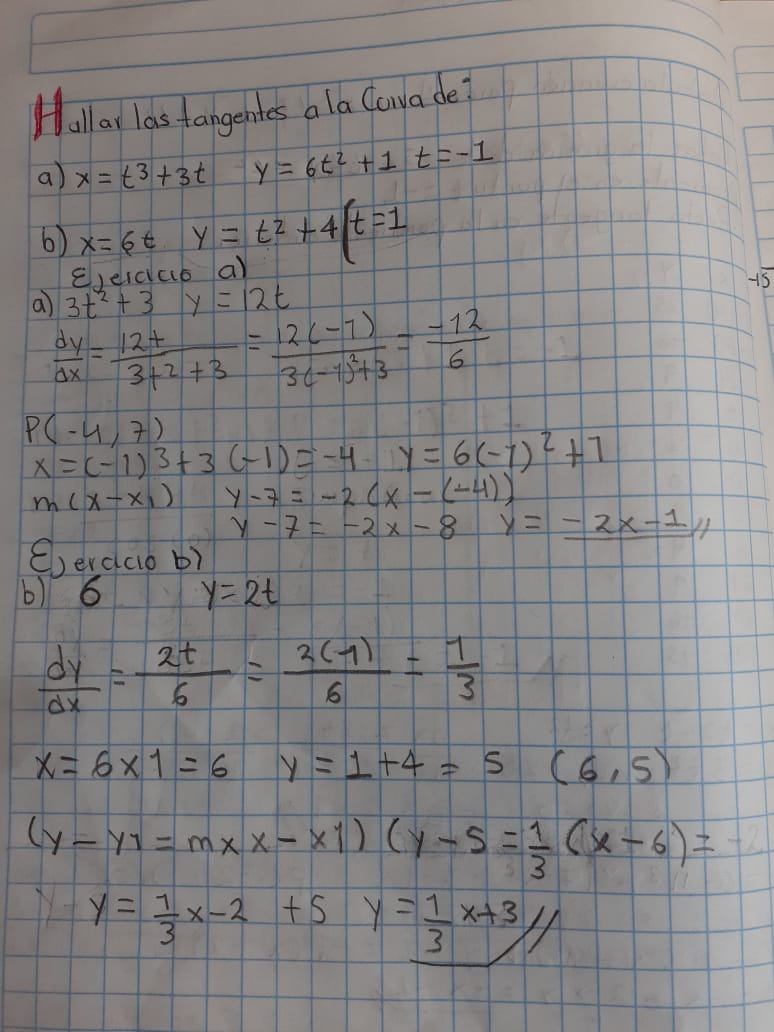 Hallar las tangentes a la Curva de:
a) x = t³ + 3t y = 6t² + 1 t = -1
b) x = 6t y = t² + 4 ( t = 1
Ejercicio a)
a) 3t² + 3 y = 12t
dy/dx = 12t/3t² + 3 = 12(-1)/3(-1)² + 3 = -12/6
P(-4, 7)
x = (-1)³ + 3(-1) = -4 y = 6(-1)² + 1
m(x - x₁) y - 7 = -2(x - (-4))
y - 7 = -2x - 8 y = -2x - 1 //
Ejercicio b)
b) 6 y = 2t
dy/dx = 2t/6 = 2(1)/6 = 1/3
x = 6 x 1 = 6 y = 1 + 4 = 5 (6, 5)
(y - y1 = m x x - x1) (y - 5 = 1/3 (x - 6) =
y = 1/3 x - 2 + 5 y = 1/3 x + 3 //
-15